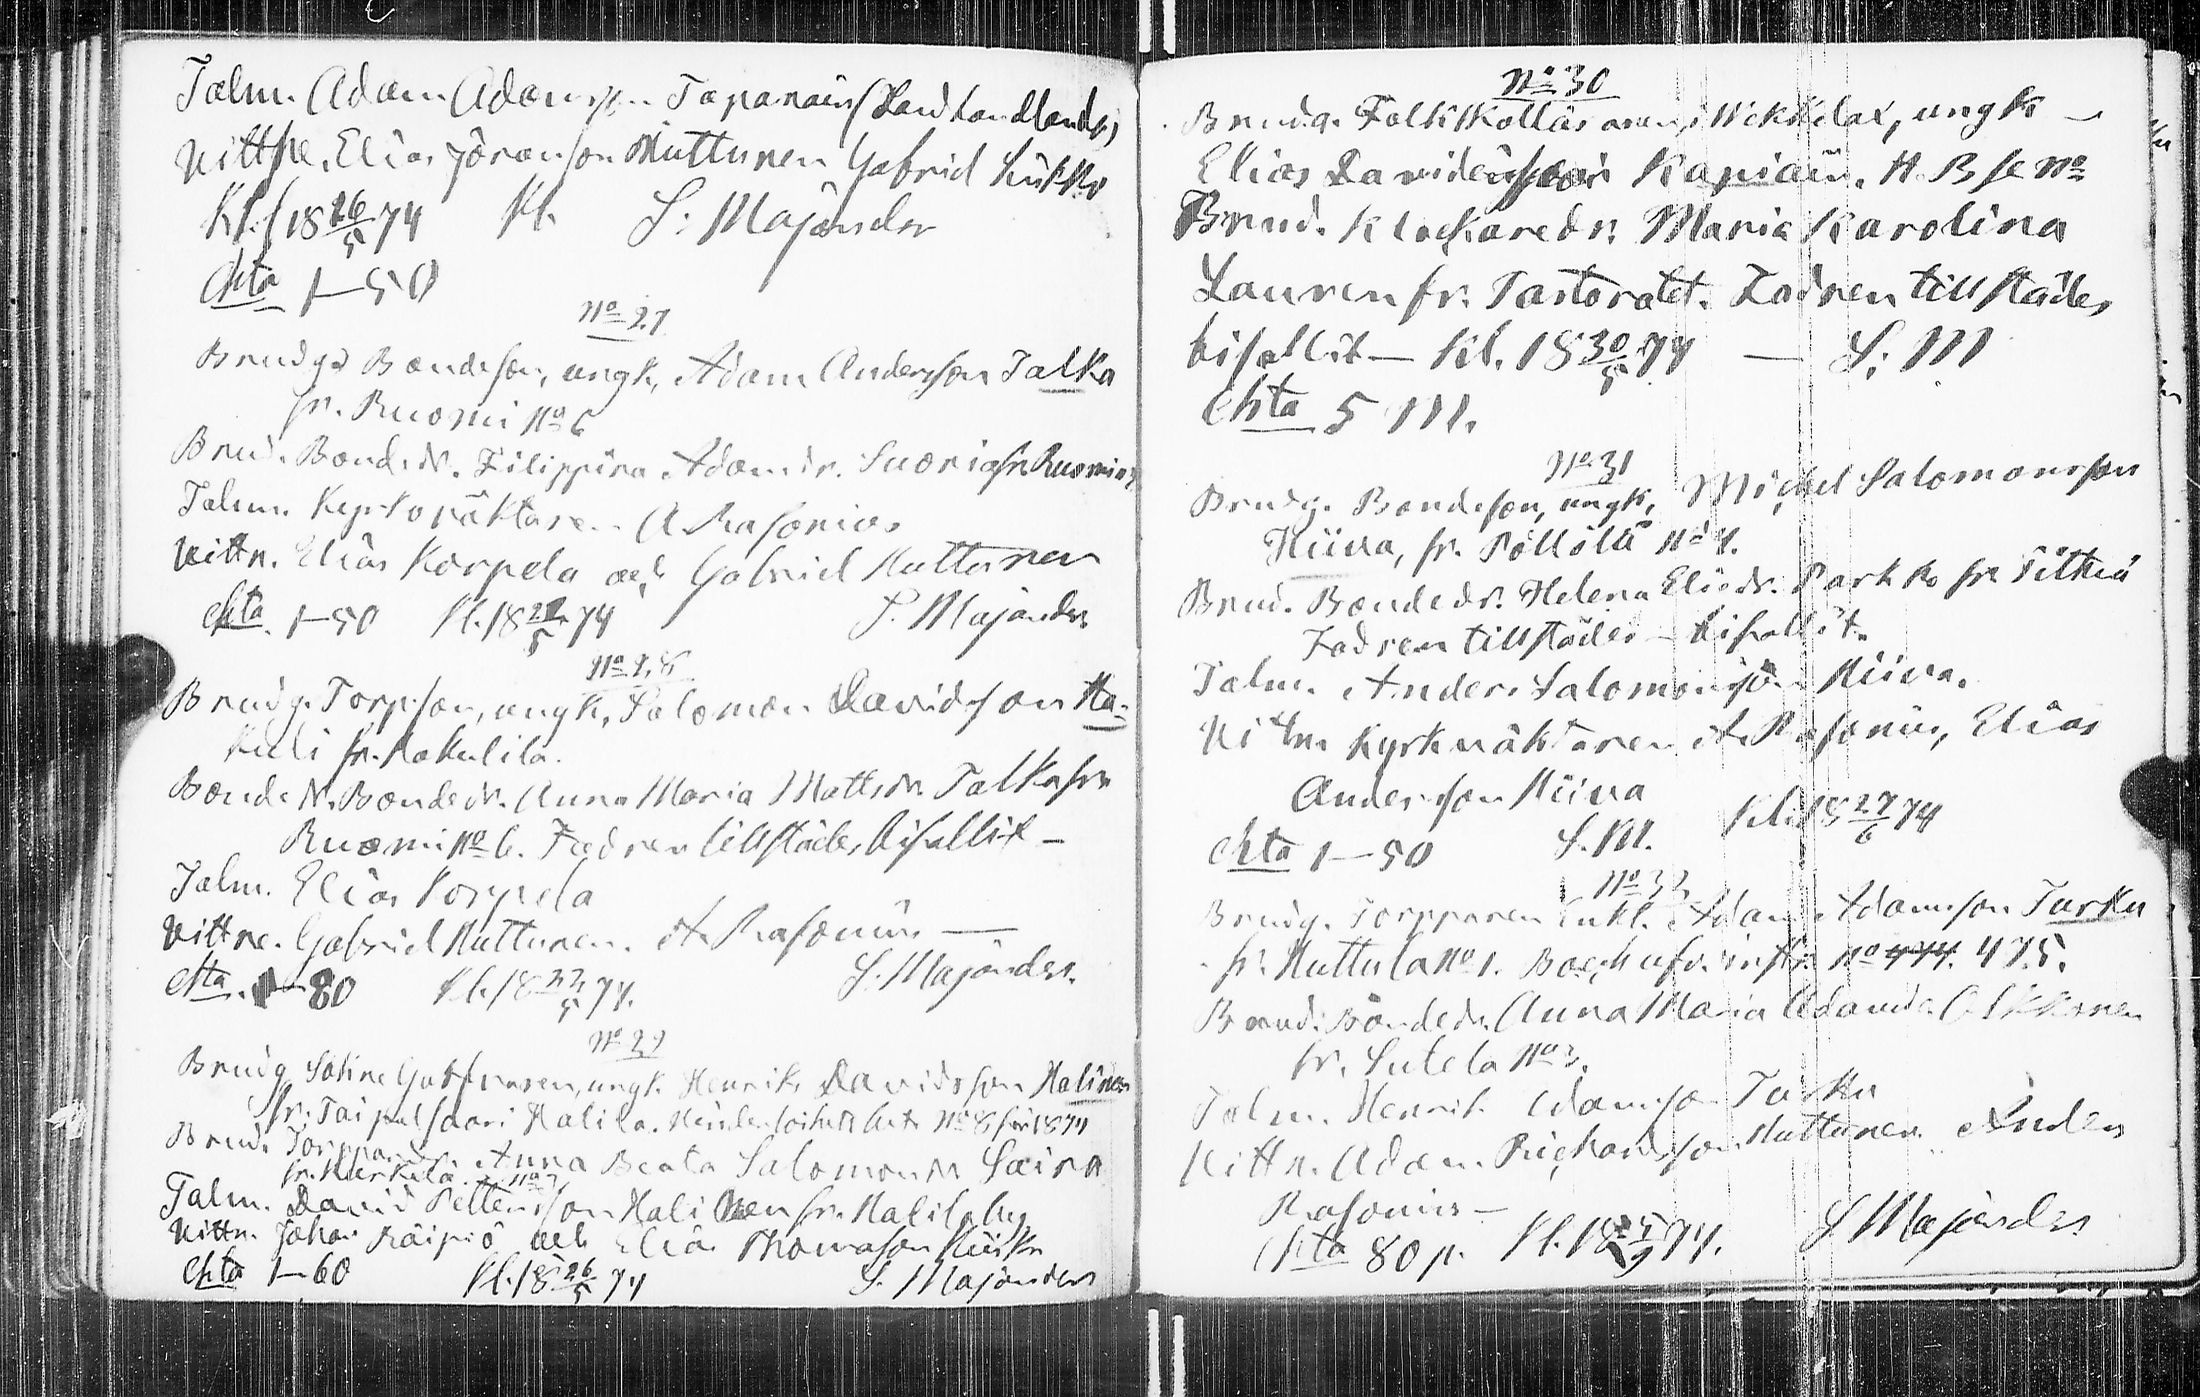 Talm. Adam Adamsson Tapanain (Landhandlande)
Vittne. Elias Göransson Nuttunen Gabriel Kiikko
Kl. 18 26/5 74 Kl. S: Majander
Chta 1–50
No 27
Brudg. Bondeson, ungk, Adam Andersson Talka
fr. Ruomi No 6
Brud. Bonde dr. Filippina Adamsdr. Suoria fr. Ruomi
Talm. Kyrkovaktaren A Rasonius
Vittn. Elias Korpela och Gabriel Nuttunen
Chta 1–50 Kl. 18 22/5 74 S. Majander
No 28
Brudg. Torpson, ungk, Salomon Davidsson Ha-
kuli fr. Hakulila.
Bonde dr. Bondedr. Anna Maria Mattsdr. Talka fr.
Ruomi No 6. Fadren tillstädes bifallit –
Talm. Elias Korpela
Vittne. Gabriel Nuttunen. A Rasonius —
Chta. 80 Kl. 18 22/5 74. S. Majander.
No 29
Brudg. ungk. Henrik Davidsson Halinen
fr. Taipalsaari Halila. No 8 för 1874
Brud. Anna Beata Salomonsdr Saira
fr. Kärkelä No 2
Talm. David Pettersson Halinen fr. Halila by
Vittn. Johan Räipiö och Elias Thomasson Kiiski
Chta 1–60 Kl. 18 26/5 74 S. Majander
No 30
Brudg. Folkskolläraren i Wekkelax, ungk –
Elias Davidsson Kapiain. H. B se No
Brud. Klockaredr. Maria Karolina
Lauren fr. Pastoratet. Fadren tillstädes
bifallit – Kl. 18 30/5 74 — S. M
Chta 5 M.
No 31
Brudg. Bondeson, ungk, Michel Salomonsson
Hiiva, fr. Pöllölä No 4.
Brud. Bondedr. Helena Eliedr. Parkko fr. Pitkä
Fadren tillstädes – bifallit.
Talm. Anders Salomonsson Hiiva.
Vittn. Kyrkväktaren A. Rasonius, Elias
Andersson Hiiva
Chta 1–50 S. M. Kl. 18 27/6 74
No 32
Brudg. Torpparen Enkl. Adam Adamsson Turku
fr. Huttula No 1. Bouppt. instr. No 474. 475.
Brud. Bondedr. Anna Maria Adamsdr. Olkkonen
fr. Sutela No 3.
Talm. Henrik Adamsson Turku
Vittn. Adam Richardsson Huttunen. Anders
Rasonius –
Chta 80 p. Kl. 18 /9 74. S Majander